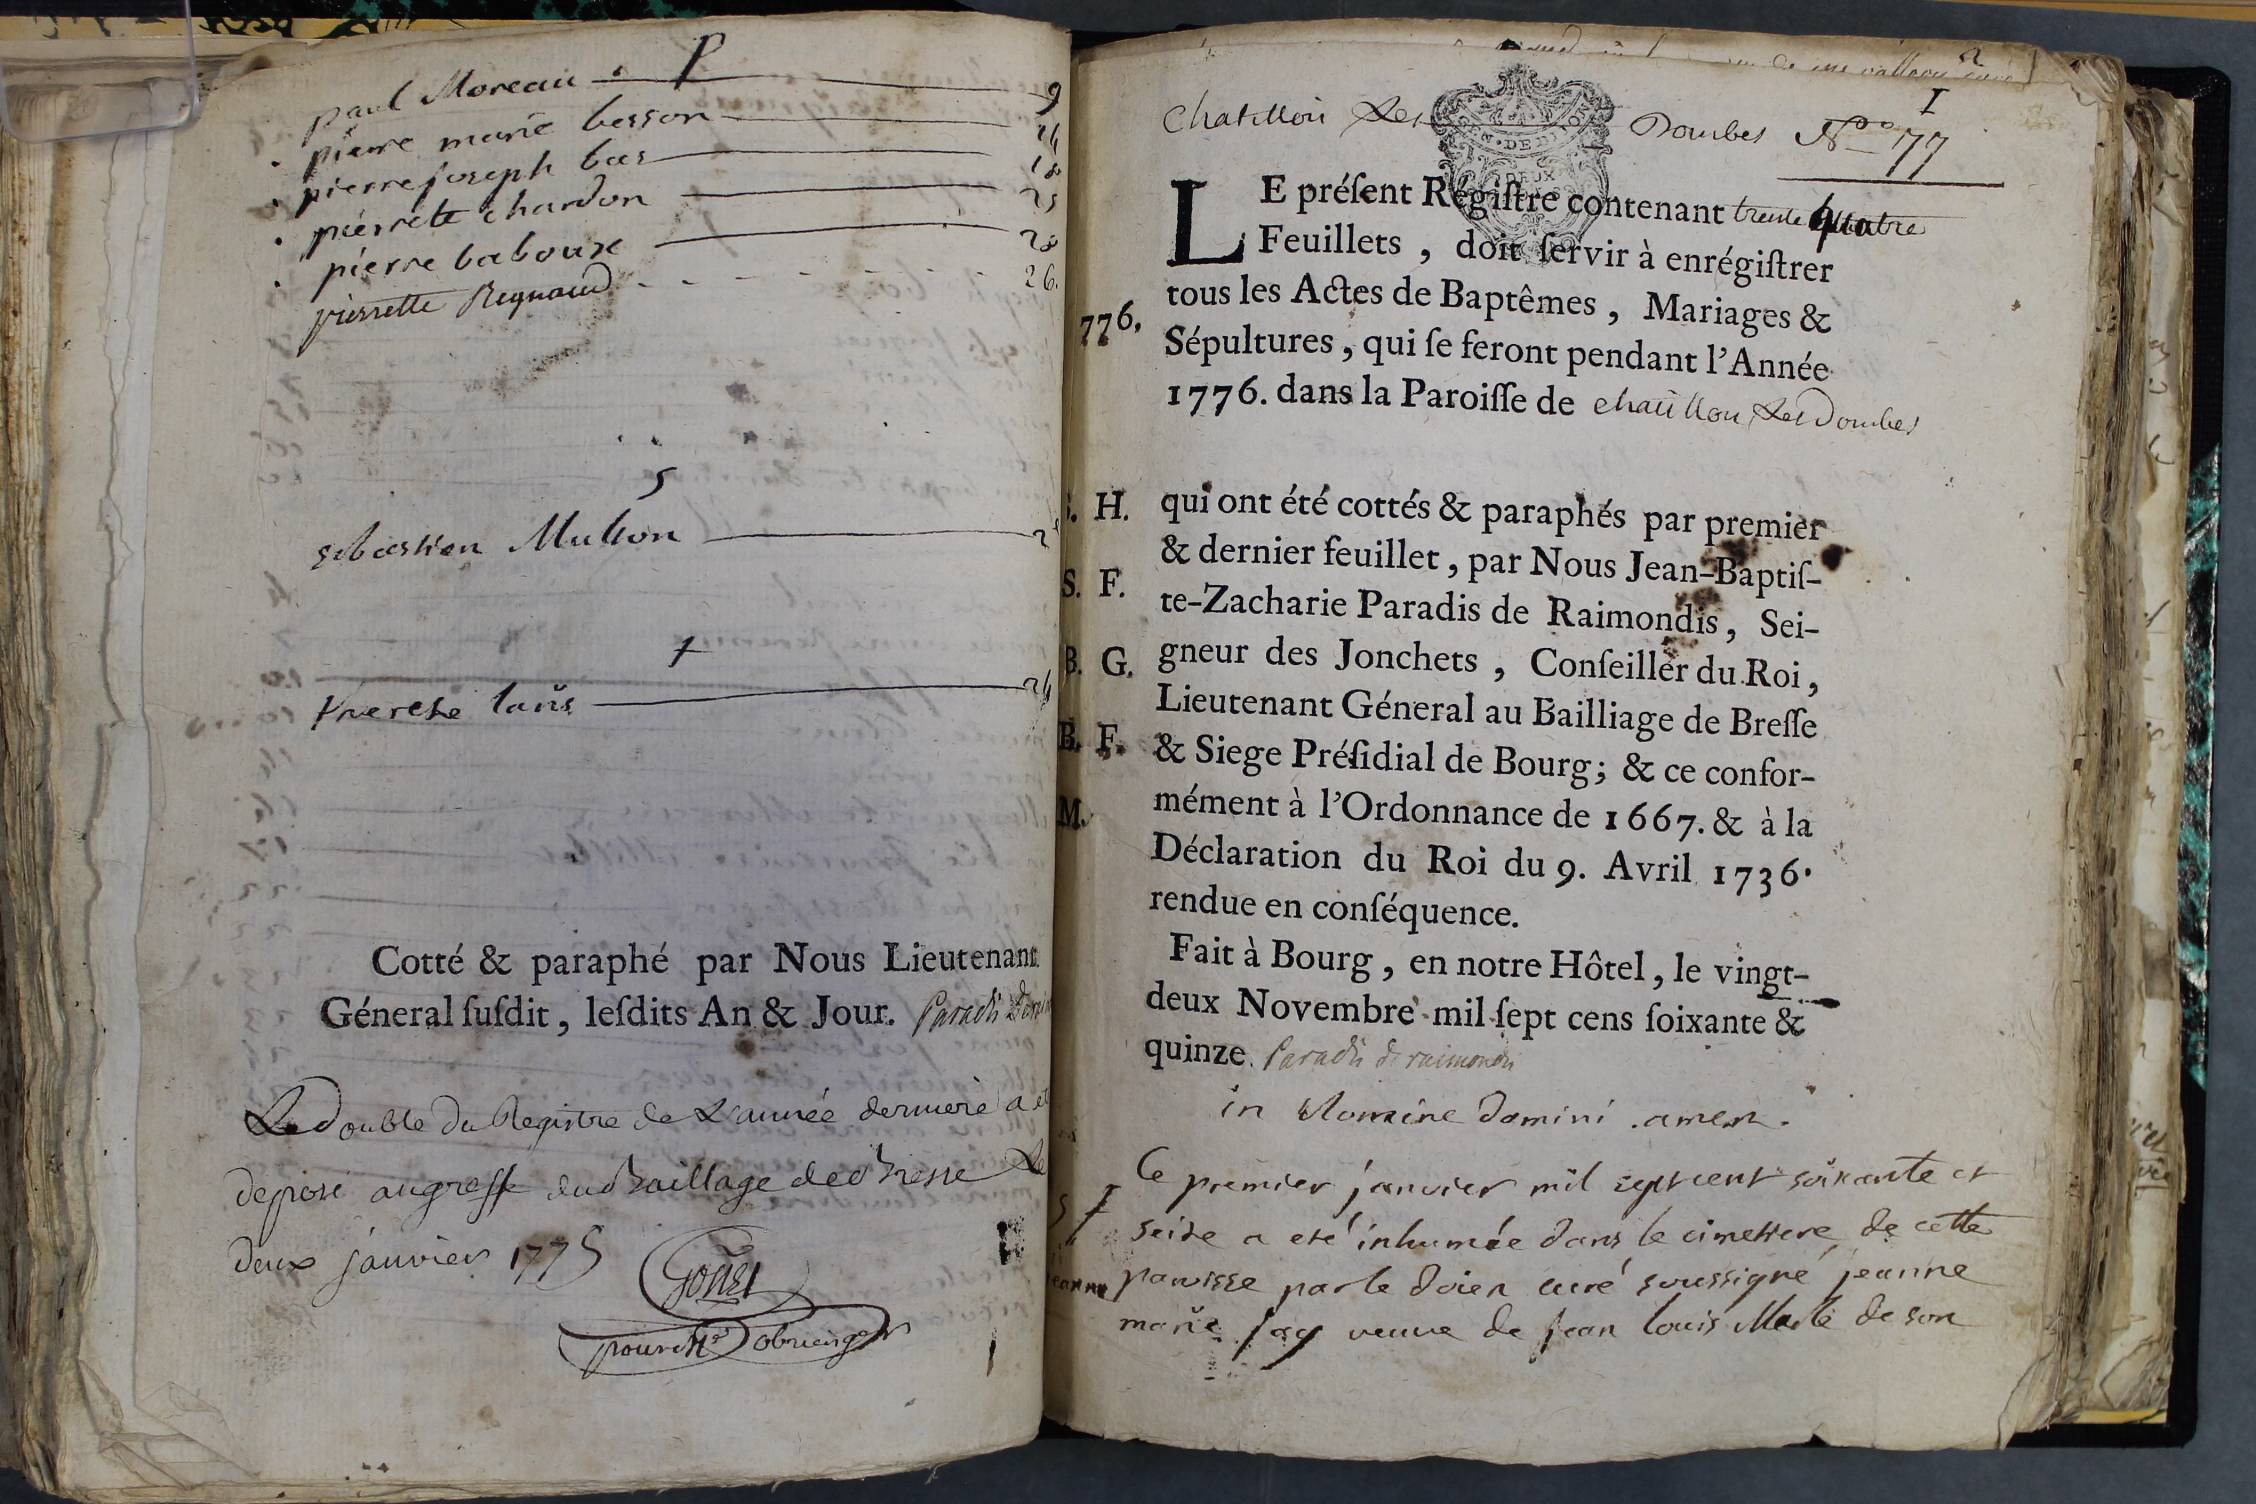 P
paul Moreau 9
pierre marie besson 24
pierre joseph bas 18
pierrette chardon 25
pierre babouse 28
pierrette Regnaud 26.
S
sebastien Multon
T
therese laus 24
Cotté & paraphé par Nous Lieutenant
Géneral ſuſdit, leſdits An & Jour. Paradis
Le Double Du Registre de L'année derniere a
deposé au greffe du Baillage de Bresse Le
deux janvier 1775
Gonet
pour Mr
I
Chatillon Les Dombes No 77
GEN. DE DIJON
DEUX
LE préſent Régiſtre contenant trente quatre
Feuillets, doit ſervir à enrégiſtrer
tous les Actes de Baptêmes, Mariages &
776. Sépultures, qui ſe feront pendant l'Année
1776. dans la Paroiſſe de chatillon Les Dombes
H. qui ont été cottés & paraphés par premier
& dernier feuillet, par Nous Jean-Baptiſ-
S. F. te-Zacharie Paradis de Raimondis, Sei-
B. G. gneur des Jonchets, Conſeiller du Roi,
Lieutenant Géneral au Bailliage de Breſſe
B. F. & Siege Préſidial de Bourg; & ce confor-
M. mément à l'Ordonnance de 1667. & à la
Déclaration du Roi du 9. Avril 1736.
rendue en conſéquence.
Fait à Bourg, en notre Hôtel, le vingt-
deux Novembre mil ſept cens ſoixante &
quinze. Paradis de raimondis
in Nomine Domini . amen .
Ce premier janvier mil sept cent soixante et
S seize a eté inhumée dans le cimettere de cette
paroisse par le doien curé soussigné jeanne
marie fay veuve de jean louis de son